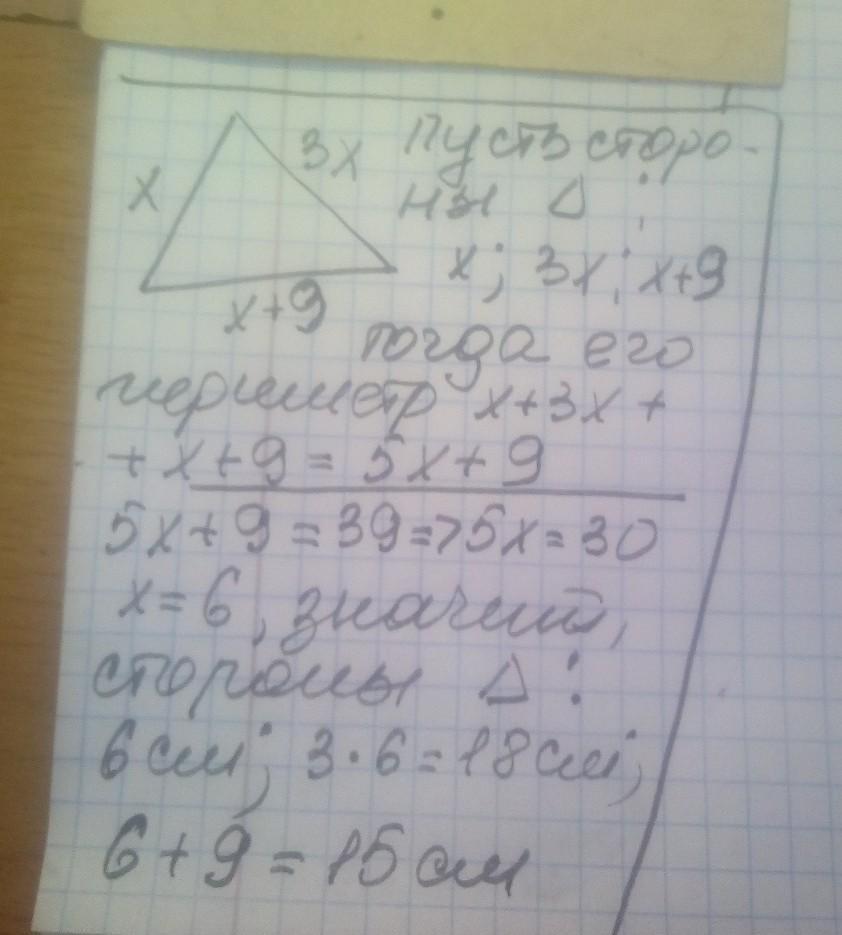 x
3x
x+9
Пусть сторо-
ны Δ :
x; 3x; x+9
тогда его
периметр x+3x+
+x+9 = 5x+9
5x+9=39=>5x=30
x=6, значит,
стороны Δ :
6 см; 3·6=18 см;
6+9=15 см